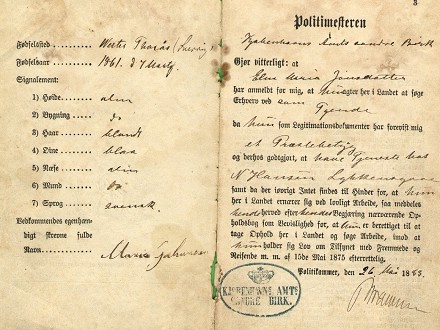 Fødselssted
Fødselsaar 1861. d 7 Martz.
Signalement:
1) Høide alm
2) Bygning do
3) Haar blondt
4) Øine blaa
5) Næse alm
6) Mund do
7) Sprog svensk.
Vedkommendes egenhændigt skrevne fulde
Navn
Maria Johanson
8
Politimesteren
Kjøbenhavns Amts søndre Birk
Gjør vitterligt: at
Maria
har anmeldt for mig, at hun agter her i Landet at søge
Erhverv ved som Tyende
da hun som Legitimationsdokumenter har forevist mig
et Præstebetyg
og derhos godtgjort, at have Tjeneste hos
N Hansen
samt da der iøvrigt Intet findes til Hinder for, at hun
her i Landet ernærer sig ved lovligt Arbeide, saa meddeles
herved efter hendes Begjæring nærværende Opholdsbog
som Bevislighed for, at hun er berettiget til at
tage Ophold her i Landet og søge Arbeide, imod at
hun holder sig Lov om Tilsynet med Fremmede og
Reisende m. m. af 15de Mai 1875 efterrettelig.
Politikammer, den 26 Mai 1883.
KJØBENHAVNS AMTS
SØNDRE BIRK.